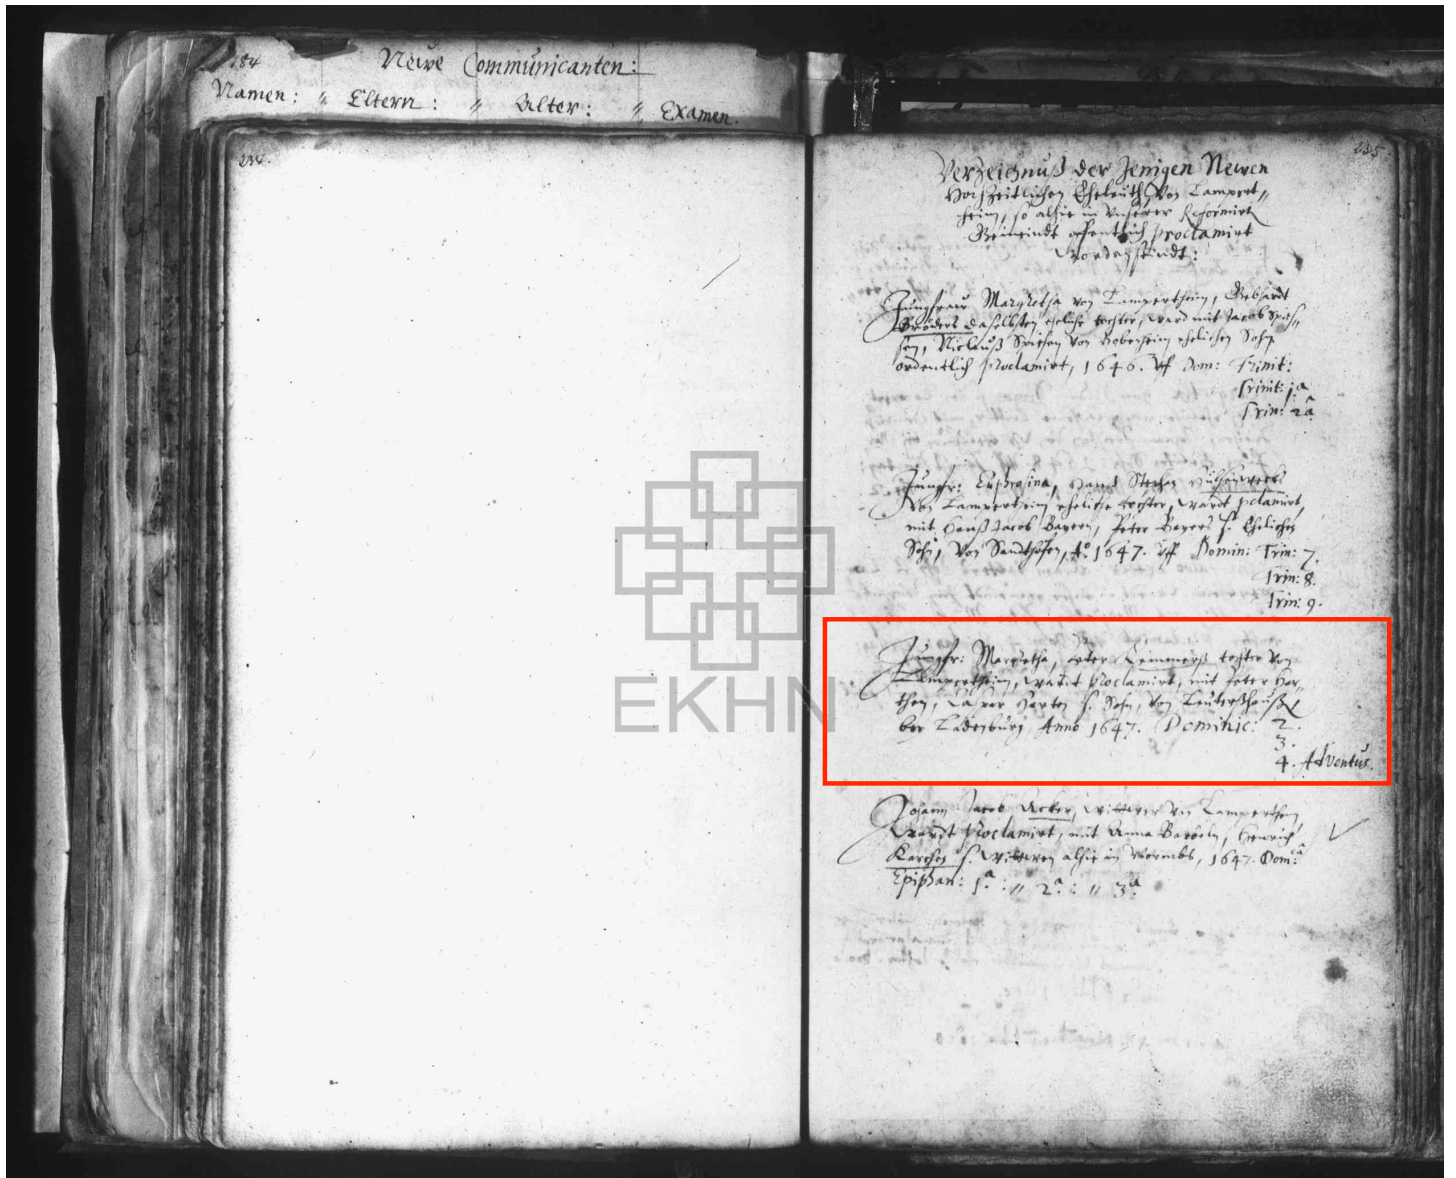 184
Newe Communicanten:
Namen: " Eltern: " Alter: " Examen.
234.
235.
Verzeichnuß der Jenigen Newen
Hochzeitlichen Eheleuth, Von Lampert„
heim, so alhie in Unserer Reformirt
Gemeindt offentlich proclamirt
Worden seindt:
Jungfraw Margretha von Lampertheim, Gebhardt
Bröders daselbsten eheliche tochter, ward mit Jacob Spies„
sen, Niclauß Spiesen von Boberheim ehelichen Sohn
ordentlich proclamirt, 1646. Uff Dom: Trinit:
Trinit: 1a
Trin: 2a
Jungfr: Euphrosina, Hanß Steffen
Von Lampertheim eheliche tochter, wardt pclamirt,
mit Hanß Jacob Bayern, Peter Bayers s. Ehelichen
Sohn, Von Sandthofen, Ao 1647. Uff Domin: Trin: 7.
Trin: 8.
Trin: 9.
Jungfr: Margretha, Peter tochter Von
Lampertheim, wardt proclamirt, mit Peter Har„
then, Caspar Harten s. Sohn, von Leutershaußen
bey Ladenburg Anno 1647. Dominic: 2.
3.
4. Adventus.
Johann Jacob Acker, Wittwer von Lampertheim
wardt proclamirt, mit Anna Barbeln, Henrich
Karches s. Wittwen alhie in Wormbs, 1647. Dom:
Epiphan: 1a: " 2a: " 3a:
EKHN